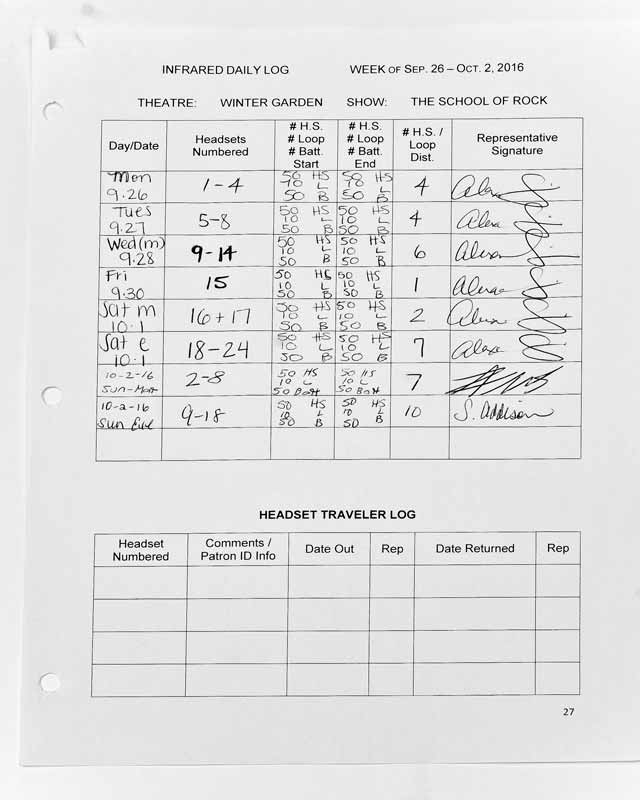 INFRARED DAILY LOG WEEK OF SEP. 26 – OCT. 2, 2016
THEATRE: WINTER GARDEN SHOW: THE SCHOOL OF ROCK
Day/Date Headsets Numbered # H.S. # Loop # Batt. Start # H.S. # Loop # Batt. End # H.S. / Loop Dist. Representative Signature
Mon 9.26 1-4 50 HS 10 L 50 B 50 HS 10 L 50 B 4
Tues 9.27 5-8 50 HS 10 L 50 B 50 HS 10 L 50 B 4
Wed(m) 9.28 9-14 50 HS 10 L 50 B 50 HS 10 L 50 B 6
Fri 9.30 15 50 HS 10 L 50 B 50 HS 10 L 50 B 1
Sat m 10.1 16+17 50 HS 10 L 50 B 50 HS 10 L 50 B 2
Sat e 10.1 18-24 50 HS 10 L 50 B 50 HS 10 L 50 B 7
10-2-16 Sun-Mat 2-8 50 HS 10 L 50 Batt 50 HS 10 L 50 Batt 7
10-2-16 Sun Eve 9-18 50 HS 10 L 50 B 50 HS 10 L 50 B 10 S. Addison
HEADSET TRAVELER LOG
Headset Numbered Comments / Patron ID Info Date Out Rep Date Returned Rep
27